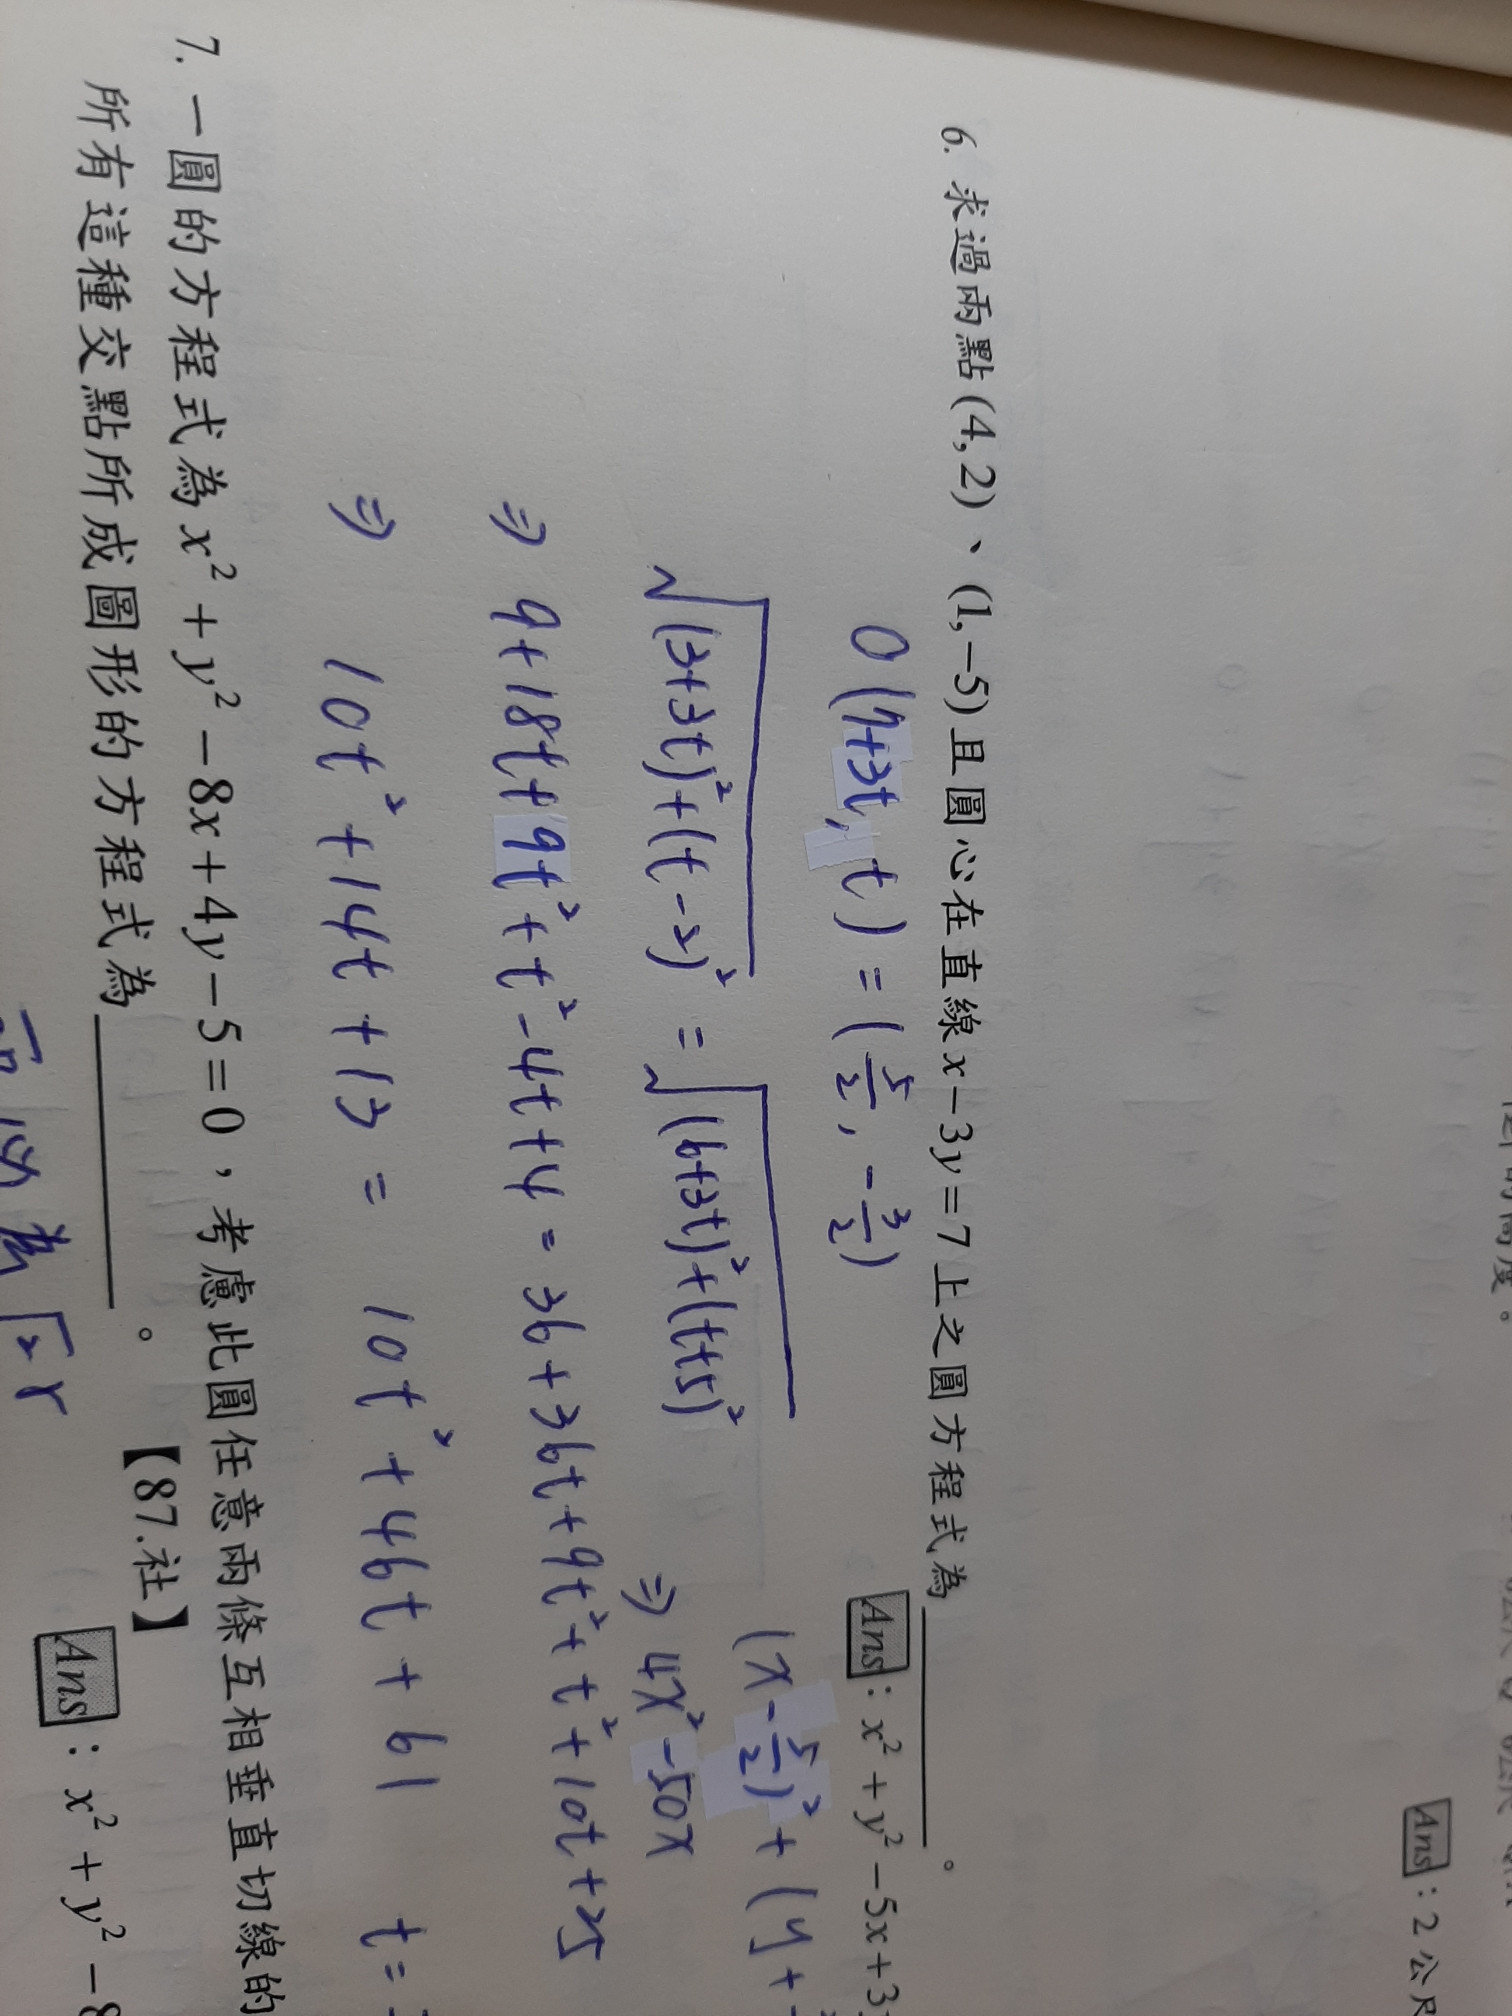 Ans：2公尺
6. 求過兩點(4,2)、(1,−5)且圓心在直線x−3y=7上之圓方程式為＿＿＿。
Ans：x²+y²−5x+3
O(7+3t, t) = (5/2, −3/2)
(x−5/2)²+(y+
√((3+3t)²+(t−2)²) = √((6+3t)²+(t+5)²)
⇒ 4x²−50x
⇒ 9+18t+9t²+t²−4t+4 = 36+36t+9t²+t²+10t+25
⇒ 10t²+14t+13 = 10t²+46t+61 t=
7. 一圓的方程式為x²+y²−8x+4y−5=0，考慮此圓任意兩條互相垂直切線的
所有這種交點所成圖形的方程式為＿＿＿。【87.社】
Ans：x²+y²−8
為√2 r